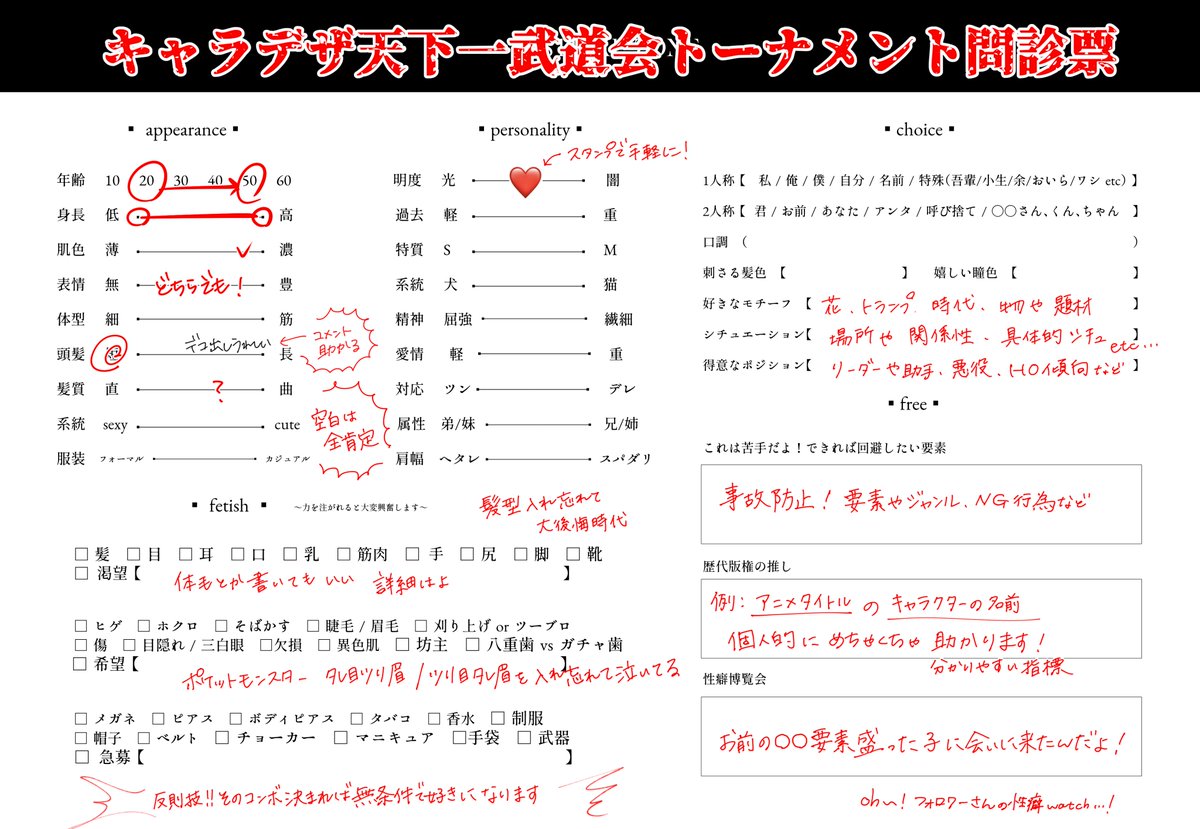 キャラデザ天下一武道会トーナメント問診票
▪ appearance ▪
年齢 10 20 30 40 50 60
身長 低 高
肌色 薄 濃
表情 無 どちらでも! 豊
体型 細 筋
頭髪 デコ出しうれしい 長
コメント
助かる
髪質 直 ? 曲
系統 sexy cute
空白は
全肯定
服装 フォーマル カジュアル
▪ personality ▪
スタンプで手軽に!
明度 光 闇
過去 軽 重
特質 S M
系統 犬 猫
精神 屈強 繊細
愛情 軽 重
対応 ツン デレ
属性 弟/妹 兄/姉
肩幅 ヘタレ スパダリ
▪ fetish ▪ ~力を注がれると大変興奮します~
髪型入れ忘れて
大後悔時代
□ 髪 □ 目 □ 耳 □ 口 □ 乳 □ 筋肉 □ 手 □ 尻 □ 脚 □ 靴
□ 渇望【 体毛とか書いてもいい 詳細はよ 】
□ ヒゲ □ ホクロ □ そばかす □ 睫毛 / 眉毛 □ 刈り上げ or ツーブロ
□ 傷 □ 目隠れ / 三白眼 □欠損 □ 異色肌 □ 坊主 □ 八重歯 vs ガチャ歯
□ 希望【 】
ポケットモンスター タレ目ツリ眉 / ツリ目タレ眉を入れ忘れて泣いてる
□ メガネ □ ピアス □ ボディピアス □ タバコ □ 香水 □ 制服
□ 帽子 □ ベルト □ チョーカー □ マニキュア □手袋 □ 武器
□ 急募【 】
反則技!!そのコンボ決まれば無条件で好きになります
▪ choice ▪
1人称【 私 / 俺 / 僕 / 自分 / 名前 / 特殊(吾輩/小生/余/おいら/ワシ etc) 】
2人称【 君 / お前 / あなた / アンタ / 呼び捨て / 〇〇さん、くん、ちゃん 】
口調 ( )
刺さる髪色 【 】 嬉しい瞳色 【 】
好きなモチーフ 【 花、トランプ、時代、物や題材 】
シチュエーション【 場所や関係性、具体的シチュetc... 】
得意なポジション【 リーダーや助手、悪役、HO傾向など 】
▪ free ▪
これは苦手だよ!できれば回避したい要素
事故防止! 要素やジャンル、NG行為など
歴代版権の推し
例: アニメタイトル の キャラクターの名前
個人的に めちゃくちゃ 助かります!
分かりやすい指標
性癖博覧会
お前の〇〇要素盛った子に会いに来たんだよ!
ohh! フォロワーさんの性癖watch...!